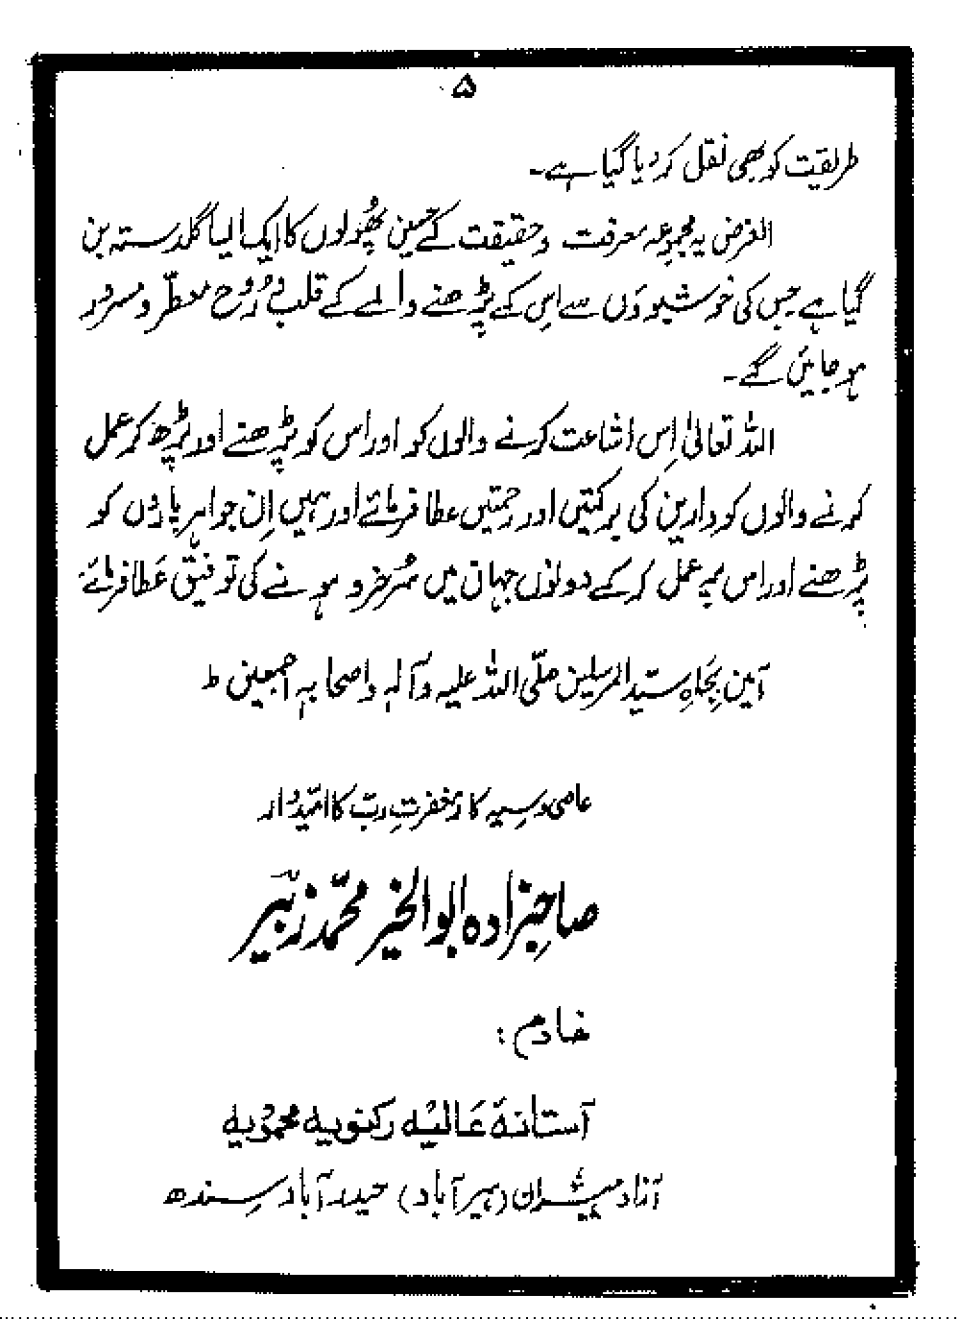 ۵
طریقیت کو بھی نقل کر دیا گیا ہے۔
الغرض یہ مجموعہ معرفت و حقیقت کے حسین پھُولوں کا ایک ایسا گلدستہ بن
گیا ہے جس کی خوشبووَں سے اس کے پڑھنے والے کے قلب و رُوح معطّر و مسرُور
ہو جائیں گے۔
اللہ تعالیٰ اِس اشاعت کرنے والوں کو اور اس کو پڑھنے اور پڑھ کر عمل
کرنے والوں کو دارین کی برکتیں اور رحمتیں عطا فرمائے اور ہمیں اِن جواہر پاروں کو
پڑھنے اور اس پہ عمل کر کے دونوں جہان میں سُرخرو ہونے کی توفیق عَطا فرمائے
آمین بِجَاہِ سیّد المرسلین صلّی اللہ علیہ وآلہٖ واصحابہٖ اجمعین ط
عاصی و سیہ کار مغفرتِ ربّ کا اُمّیدوار
صاحِبزادہ ابوالخیر محمّد زبّیر
خادم :
آستانہ عَالیَہ رکنویہ محمُودیہ
آزاد میدان (ہیرآباد) حیدرآباد سندھ